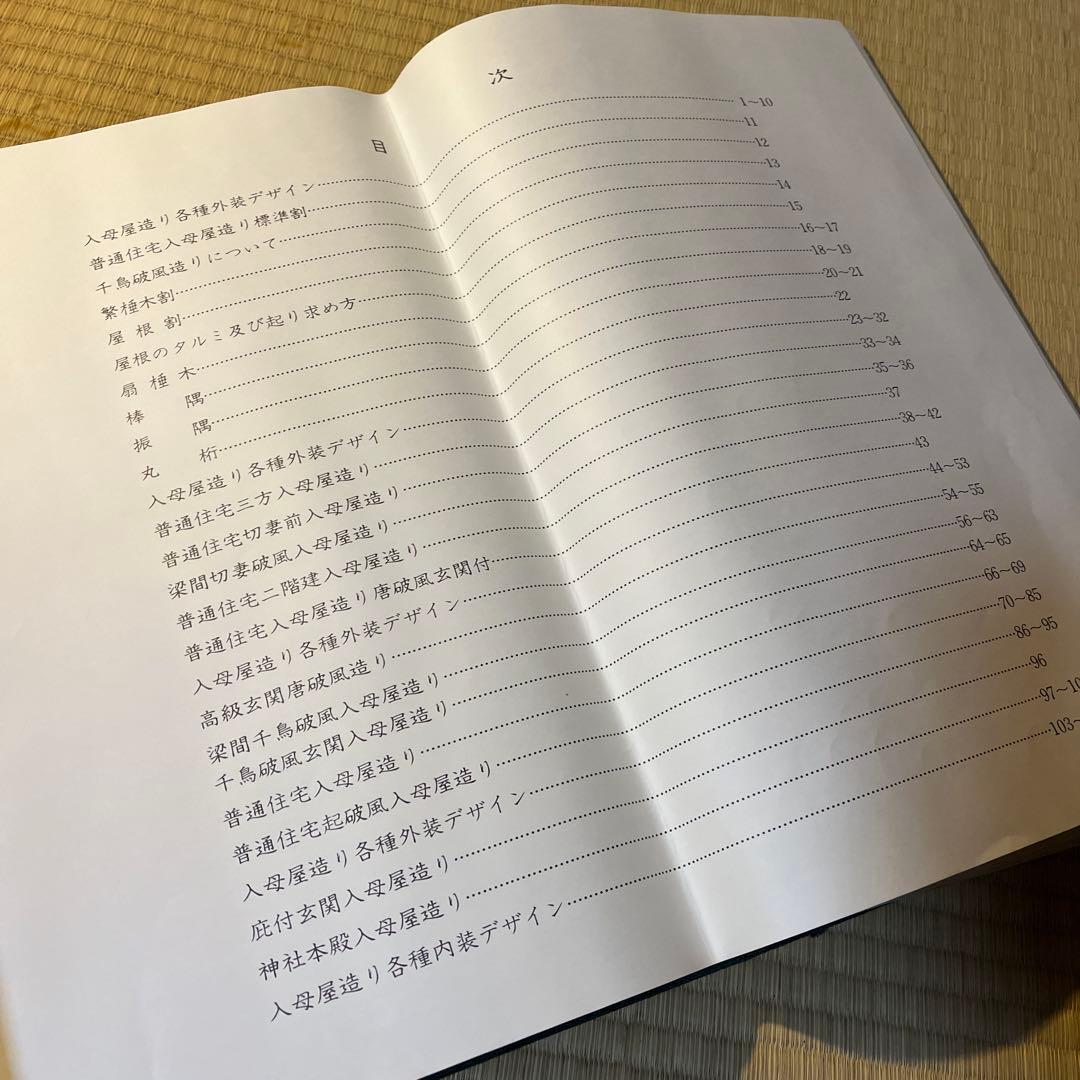 目 次
入母屋造り各種外装デザイン…………1〜10
普通住宅入母屋造り標準割…………11
千鳥破風造りについて…………12
繁棰木割…………13
屋 根 割…………14
屋根のタルミ及び起り求め方…………15
扇 棰 木…………16〜17
棒 隅…………18〜19
振 隅…………20〜21
丸 桁…………22
入母屋造り各種外装デザイン…………23〜32
普通住宅三方入母屋造り…………33〜34
普通住宅切妻前入母屋造り…………35〜36
梁間切妻破風入母屋造り…………37
普通住宅二階建入母屋造り…………38〜42
普通住宅入母屋造り唐破風玄関付…………43
入母屋造り各種外装デザイン…………44〜53
高級玄関唐破風造り…………54〜55
梁間千鳥破風入母屋造り…………56〜63
千鳥破風玄関入母屋造り…………64〜65
普通住宅入母屋造り…………66〜69
普通住宅起破風入母屋造り…………70〜85
入母屋造り各種外装デザイン…………86〜95
庇付玄関入母屋造り…………96
神社本殿入母屋造り…………97〜10
入母屋造り各種内装デザイン…………103〜